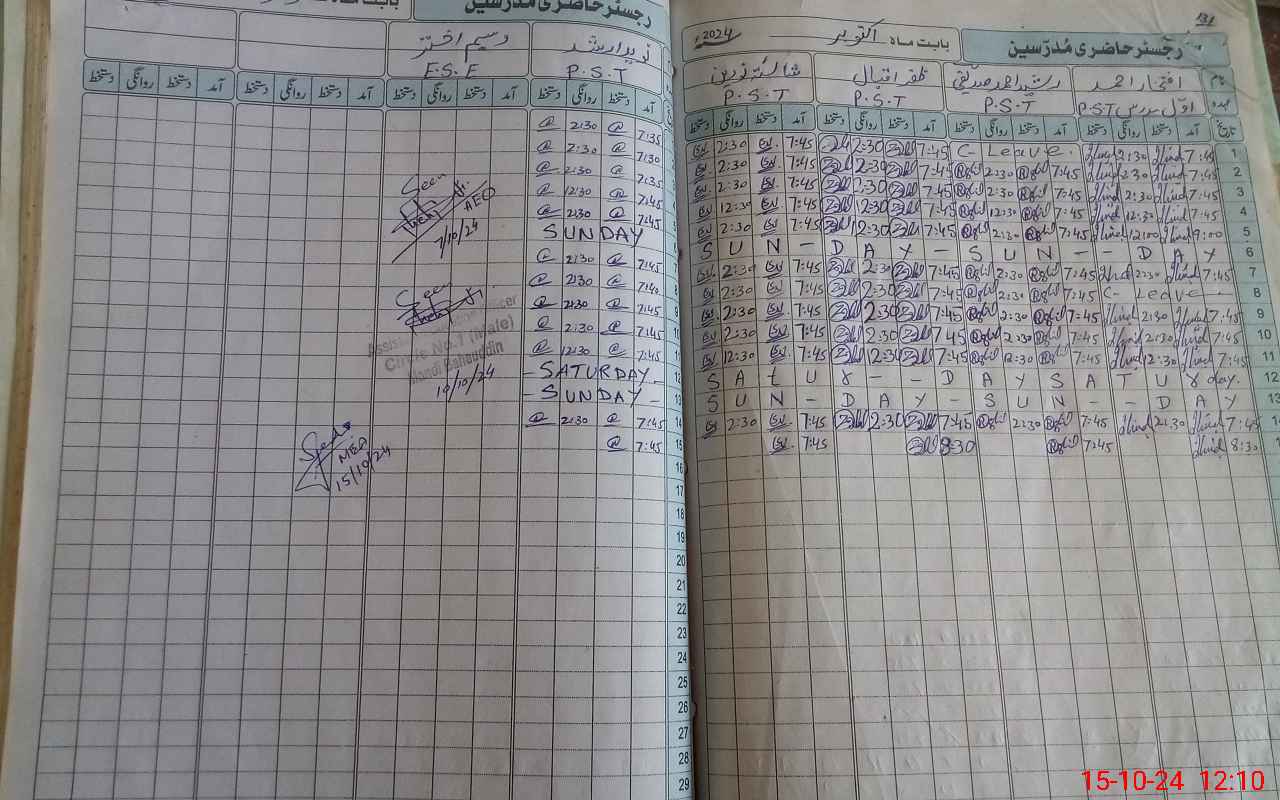 131
رجسٹر حاضری مُدرّسین بابت ماہ اکتوبر 2024ء
نام افتخار احمد رشید احمد صدیقی ظفر اقبال
عہدہ اوّل مدرس P.S.T P.S.T P.S.T P.S.T
تاریخ آمد دستخط روانگی دستخط آمد دستخط روانگی دستخط آمد دستخط روانگی دستخط آمد دستخط روانگی دستخط
1 7:45 2:30 C-Leave 7:45 2:30 7:45 2:30
2 7:45 2:30 7:45 2:30 7:45 2:30 7:45 2:30
3 7:45 2:30 7:45 2:30 7:45 2:30 7:45 2:30
4 7:45 12:30 7:45 12:30 7:45 12:30 7:45 12:30
5 9:00 12:00 7:45 2:30 7:45 2:30 7:45 2:30
6 SUN - DAY - SUN - - DAY
7 7:45 2:30 7:45 2:30 7:45 2:30 7:45 2:30
8 C-Leave - 7:45 2:30 7:45 2:30 7:45 2:30
9 7:45 2:30 7:45 2:30 7:45 2:30 7:45 2:30
10 7:45 2:30 7:45 2:30 7:45 2:30 7:45 2:30
11 7:45 12:30 7:45 12:30 7:45 12:30 7:45 12:30
12 SAtUr - - DAY SATUrday.
13 SUN - DAY - SUN - - DAY
14 7:45 2:30 7:45 2:30 7:45 2:30 7:45 2:30
15 8:30 7:45 8:30 7:45
رجسٹر حاضری مُدرّسین
بابت ماہ
وسیم اختر
P.S.T E.S.E
آمد دستخط روانگی دستخط آمد دستخط روانگی دستخط آمد دستخط روانگی دستخط آمد دستخط روانگی دستخط
7:35 @ 2:30 @
7:30 @ 2:30 @
7:35 @ 2:30 @
7:45 @ 12:30 @
7:45 @ 2:30 @
SUNDAY
7:45 @ 2:30 @
7:40 @ 2:30 @
7:45 @ 2:30 @
7:45 @ 2:30 @
7:45 @ 12:30 @
- SATURDAY -
- SUNDAY -
7:45 @ 2:30 @
7:45 @
Seen
AEO
7/10/24
Seen
Circle No.7 (Male)
Mandi Bahauddin
10/10/24
MEA
15/10/24
16
17
18
19
20
21
22
23
24
25
26
27
28
29
15-10-24 12:10